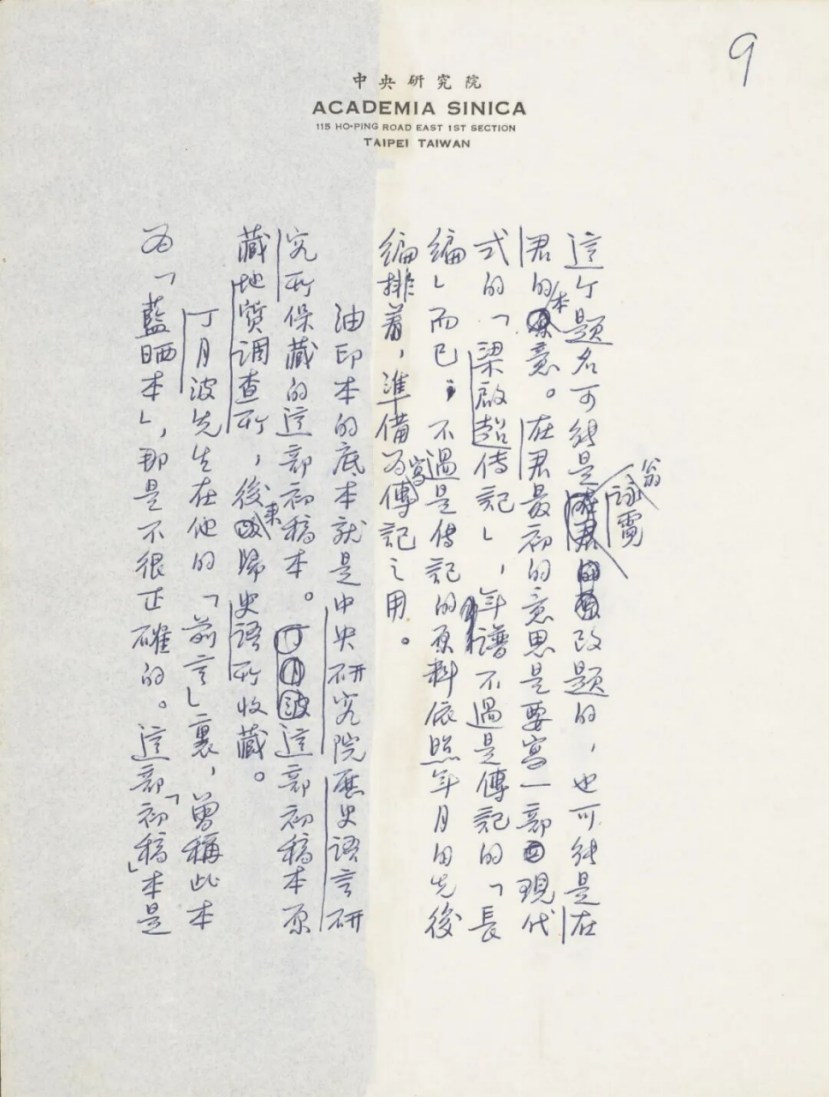 9
中央研究院
ACADEMIA SINICA
115 HO-PING ROAD EAST 1ST SECTION
TAIPEI TAIWAN
這个題名可能是翁詠霓改題的，也可能是在
君的本意。在君最初的意思是要寫一部現代
式的「梁啟超傳記」，年譜不過是傳記的「長
編」而已；不過是傳記的原料依照年月日先後
編排着，準備為寫傳記之用。
油印本的底本就是中央研究院歷史語言研
究所保藏的這部初稿本。這部初稿本原
藏地質調查所，後來歸史語所收藏。
丁月波先生在他的「前言」裏，曾稱此本
為「藍晒本」，那是不很正確的。這部「初稿」本是